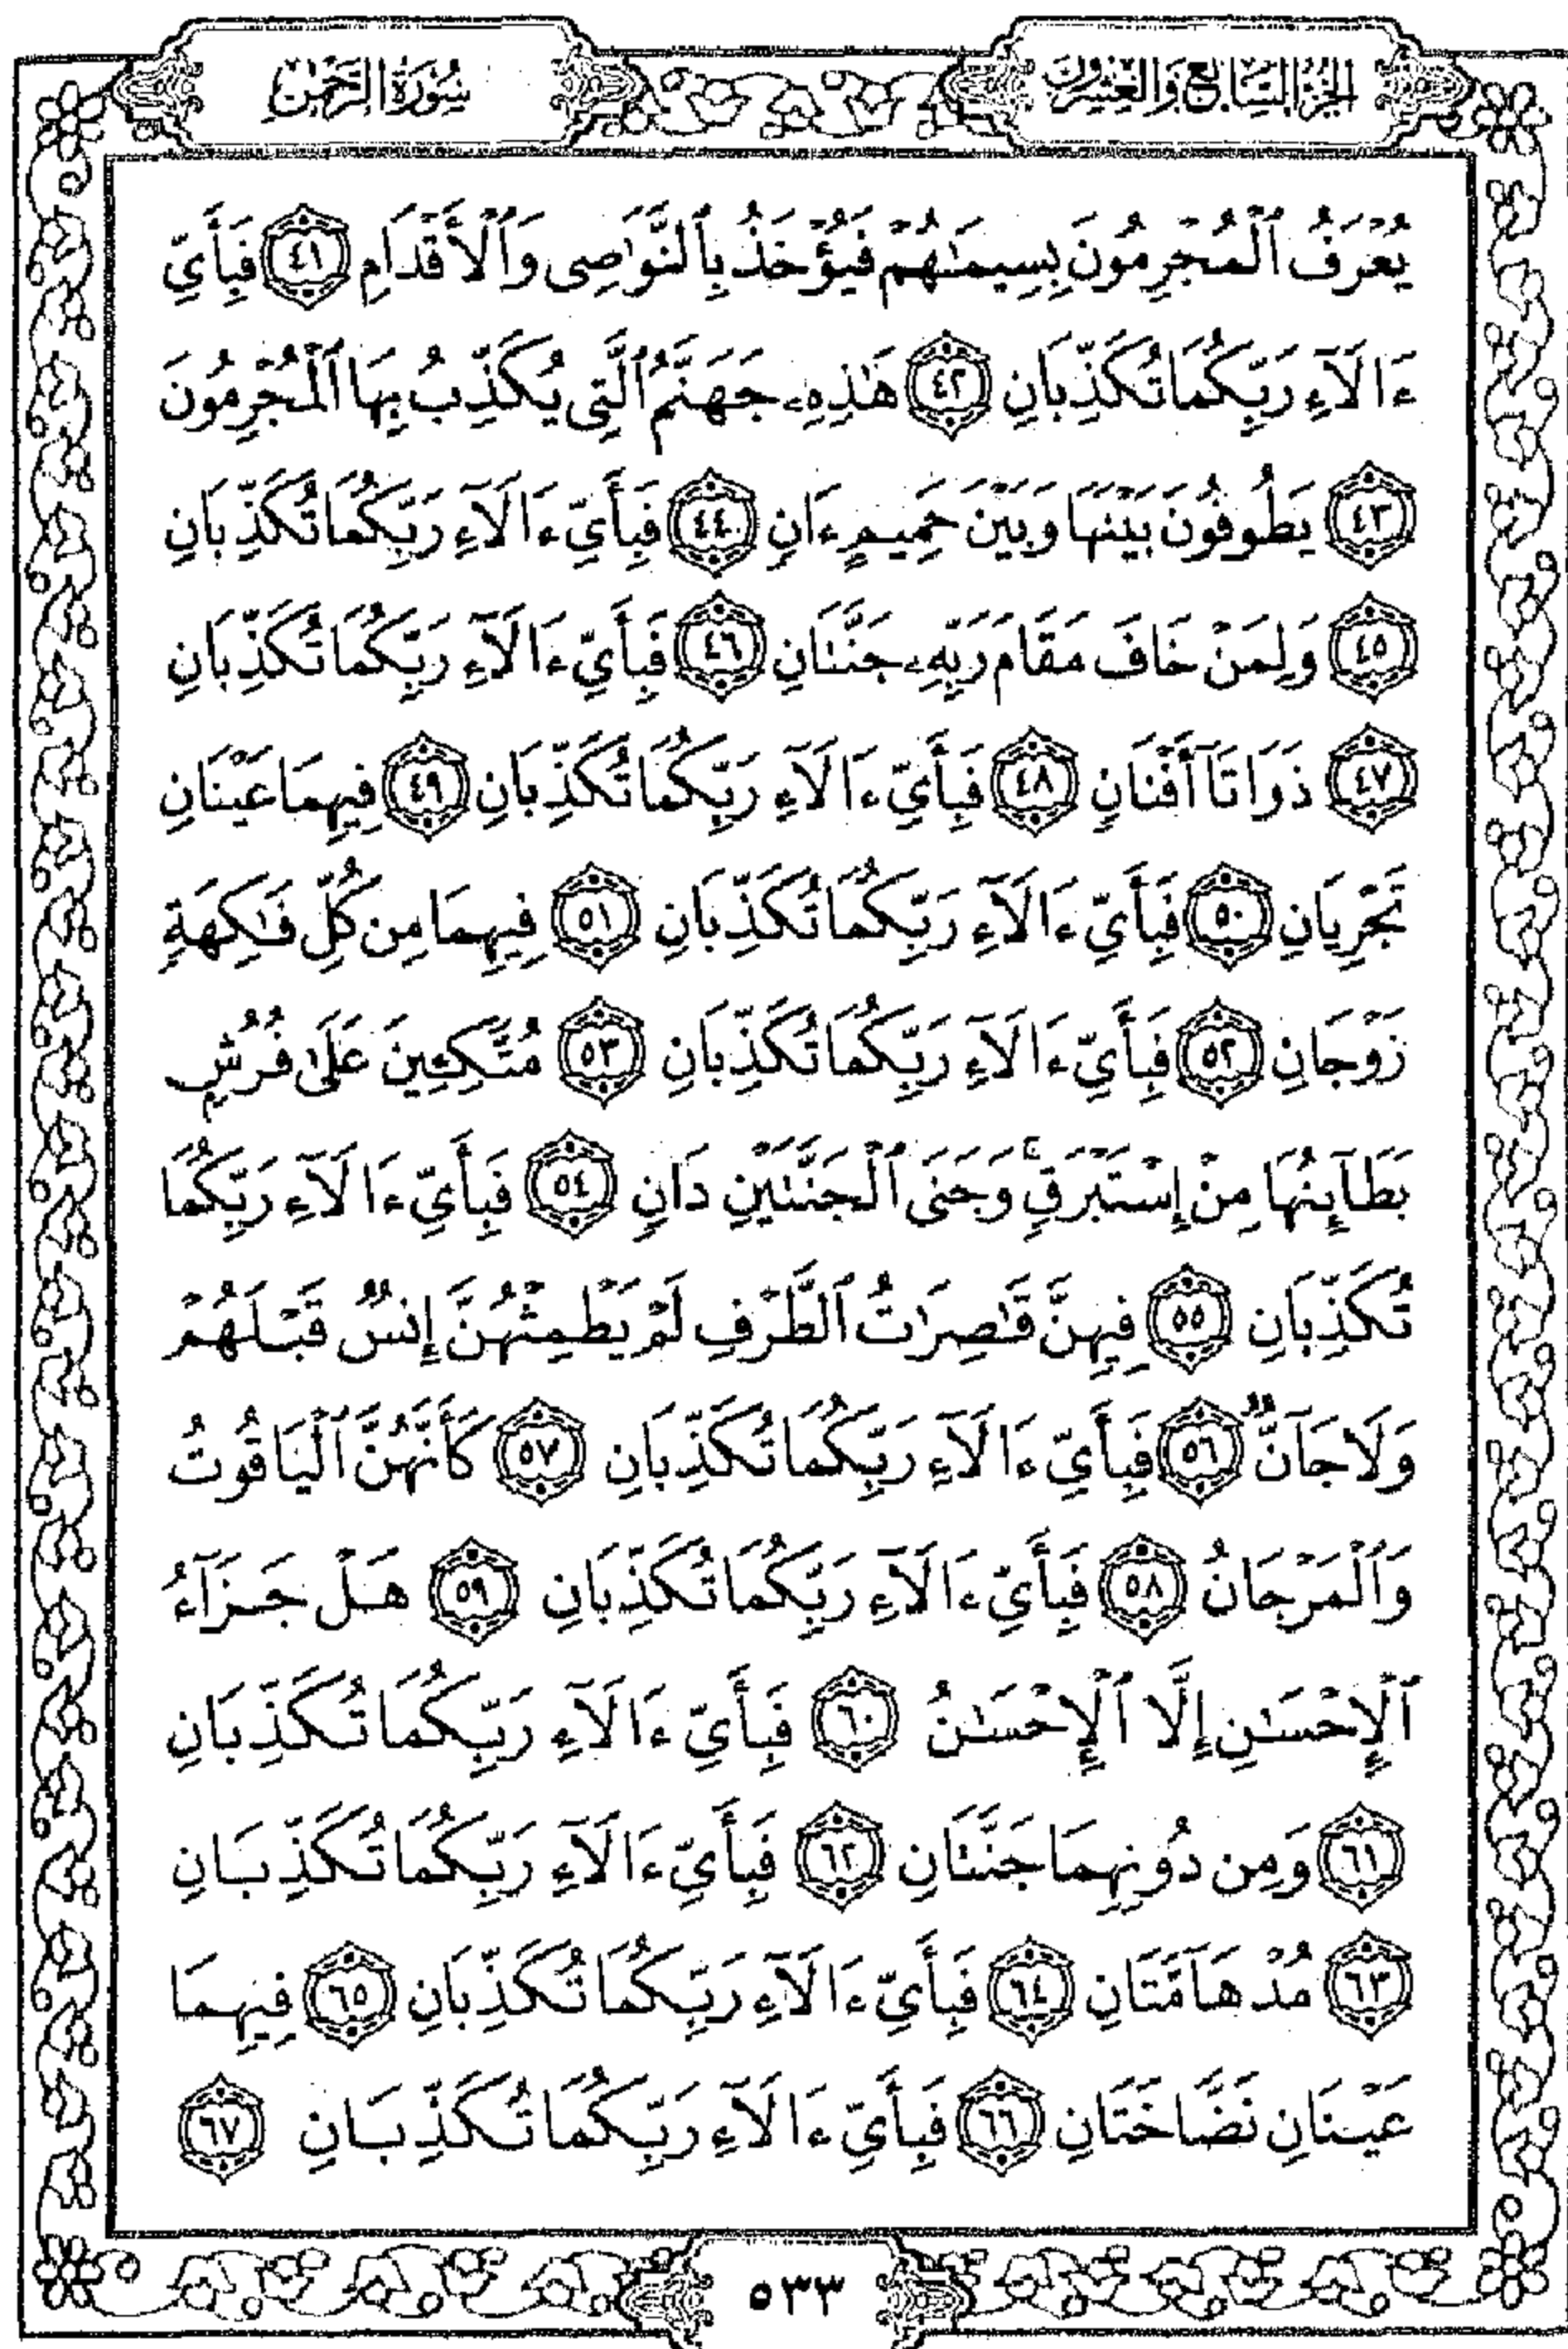 الجزء السابع والعشرون
سورة الرحمن
يُعْرَفُ ٱلْمُجْرِمُونَ بِسِيمَٰهُمْ فَيُؤْخَذُ بِٱلنَّوَٰصِى وَٱلْأَقْدَامِ ٤١ فَبِأَىِّ
ءَالَآءِ رَبِّكُمَا تُكَذِّبَانِ ٤٢ هَٰذِهِۦ جَهَنَّمُ ٱلَّتِى يُكَذِّبُ بِهَا ٱلْمُجْرِمُونَ
٤٣ يَطُوفُونَ بَيْنَهَا وَبَيْنَ حَمِيمٍ ءَانٍ ٤٤ فَبِأَىِّ ءَالَآءِ رَبِّكُمَا تُكَذِّبَانِ
٤٥ وَلِمَنْ خَافَ مَقَامَ رَبِّهِۦ جَنَّتَانِ ٤٦ فَبِأَىِّ ءَالَآءِ رَبِّكُمَا تُكَذِّبَانِ
٤٧ ذَوَاتَآ أَفْنَانٍ ٤٨ فَبِأَىِّ ءَالَآءِ رَبِّكُمَا تُكَذِّبَانِ ٤٩ فِيهِمَا عَيْنَانِ
تَجْرِيَانِ ٥٠ فَبِأَىِّ ءَالَآءِ رَبِّكُمَا تُكَذِّبَانِ ٥١ فِيهِمَا مِن كُلِّ فَٰكِهَةٍ
زَوْجَانِ ٥٢ فَبِأَىِّ ءَالَآءِ رَبِّكُمَا تُكَذِّبَانِ ٥٣ مُتَّكِـِٔينَ عَلَىٰ فُرُشٍۭ
بَطَآئِنُهَا مِنْ إِسْتَبْرَقٍۚ وَجَنَى ٱلْجَنَّتَيْنِ دَانٍ ٥٤ فَبِأَىِّ ءَالَآءِ رَبِّكُمَا
تُكَذِّبَانِ ٥٥ فِيهِنَّ قَٰصِرَٰتُ ٱلطَّرْفِ لَمْ يَطْمِثْهُنَّ إِنسٌ قَبْلَهُمْ
وَلَا جَآنٌّ ٥٦ فَبِأَىِّ ءَالَآءِ رَبِّكُمَا تُكَذِّبَانِ ٥٧ كَأَنَّهُنَّ ٱلْيَاقُوتُ
وَٱلْمَرْجَانُ ٥٨ فَبِأَىِّ ءَالَآءِ رَبِّكُمَا تُكَذِّبَانِ ٥٩ هَلْ جَزَآءُ
ٱلْإِحْسَٰنِ إِلَّا ٱلْإِحْسَٰنُ ٦٠ فَبِأَىِّ ءَالَآءِ رَبِّكُمَا تُكَذِّبَانِ
٦١ وَمِن دُونِهِمَا جَنَّتَانِ ٦٢ فَبِأَىِّ ءَالَآءِ رَبِّكُمَا تُكَذِّبَانِ
٦٣ مُدْهَآمَّتَانِ ٦٤ فَبِأَىِّ ءَالَآءِ رَبِّكُمَا تُكَذِّبَانِ ٦٥ فِيهِمَا
عَيْنَانِ نَضَّاخَتَانِ ٦٦ فَبِأَىِّ ءَالَآءِ رَبِّكُمَا تُكَذِّبَانِ ٦٧
٥٣٣